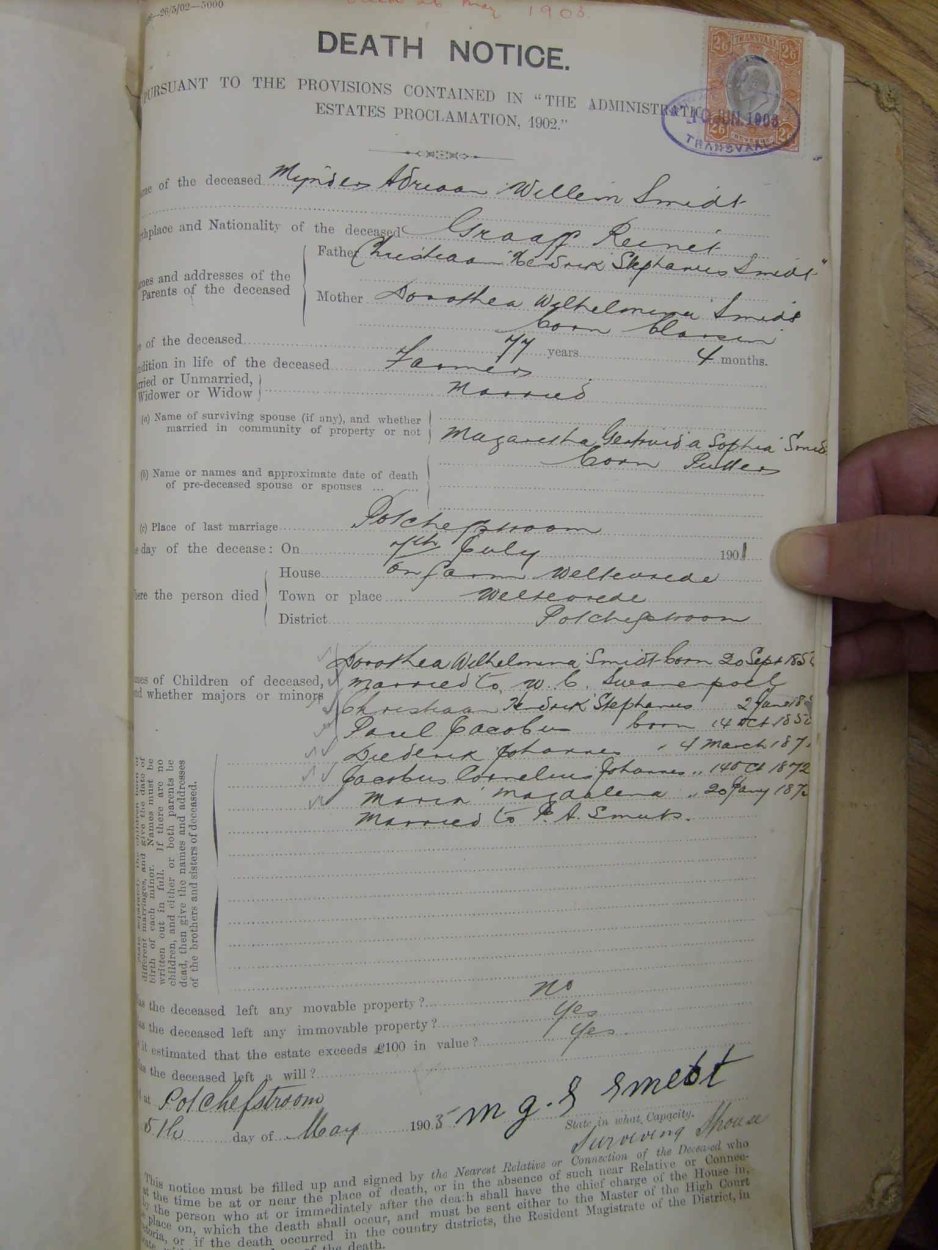 —26/5/02—5000
26 May 1903.
DEATH NOTICE.
PURSUANT TO THE PROVISIONS CONTAINED IN "THE ADMINISTRATION
ESTATES PROCLAMATION, 1902."
TRANSVAAL
2/6 2/6
REVENUE
JUN 1903
TRANSVAAL
me of the deceased Mynders Adriaan Willem Smidt
thplace and Nationality of the deceased Graaff Reinet
Father Christiaan Hendrik Stephanus Smidt
mes and addresses of the
Parents of the deceased
Mother Dorothea Wilhelmina Smidt
born
e of the deceased 77 years 4 months.
ndition in life of the deceased Farmer
rried or Unmarried,
Widower or Widow Married
(a) Name of surviving spouse (if any), and whether
married in community of property or not
Magaretha Gertruida Sophia Smidt
born
(b) Name or names and approximate date of death
of pre-deceased spouse or spouses ... ...
(c) Place of last marriage Potchefstroom
e day of the decease: On 7th July 1901
House on farm Weltevrede
here the person died Town or place Weltevrede
District Potchefstroom
mes of Children of deceased,
nd whether majors or minors
Dorothea Wilhelmina Smidt born 20 Sept 185
married to W. C. Swanepoel
Christiaan Hendrik Stephanus 2 June 18
Paul Jacobus born 14 Oct 185
Diederik Johannes " 4 March 187
Jacobus Cornelius Johannes " 14 Oct 1872
Maria Magdalena " 20 Jany 187
Married to P. A. Smuts.
State separately the children born of
different marriages, and give the date of
birth of each minor. Names must be
written out in full. If there are no
children, and either or both parents be
dead, then give the names and addresses
of the brothers and sisters of deceased.
as the deceased left any movable property? No
as the deceased left any immovable property? Yes
it estimated that the estate exceeds £100 in value? Yes.
as the deceased left a will?
at Potchefstroom
5th day of May 1903 M G. S Smidt
State in what Capacity.
Surviving Spouse
This notice must be filled up and signed by the Nearest Relative or Connection of the Deceased who
at the time be at or near the place of death, or in the absence of such near Relative or Connec-
by the person who at or immediately after the death shall have the chief charge of the House in,
place on, which the death shall occur, and must be sent either to the Master of the High Court
toria, or if the death occurred in the country districts, the Resident Magistrate of the District, in
of the death.